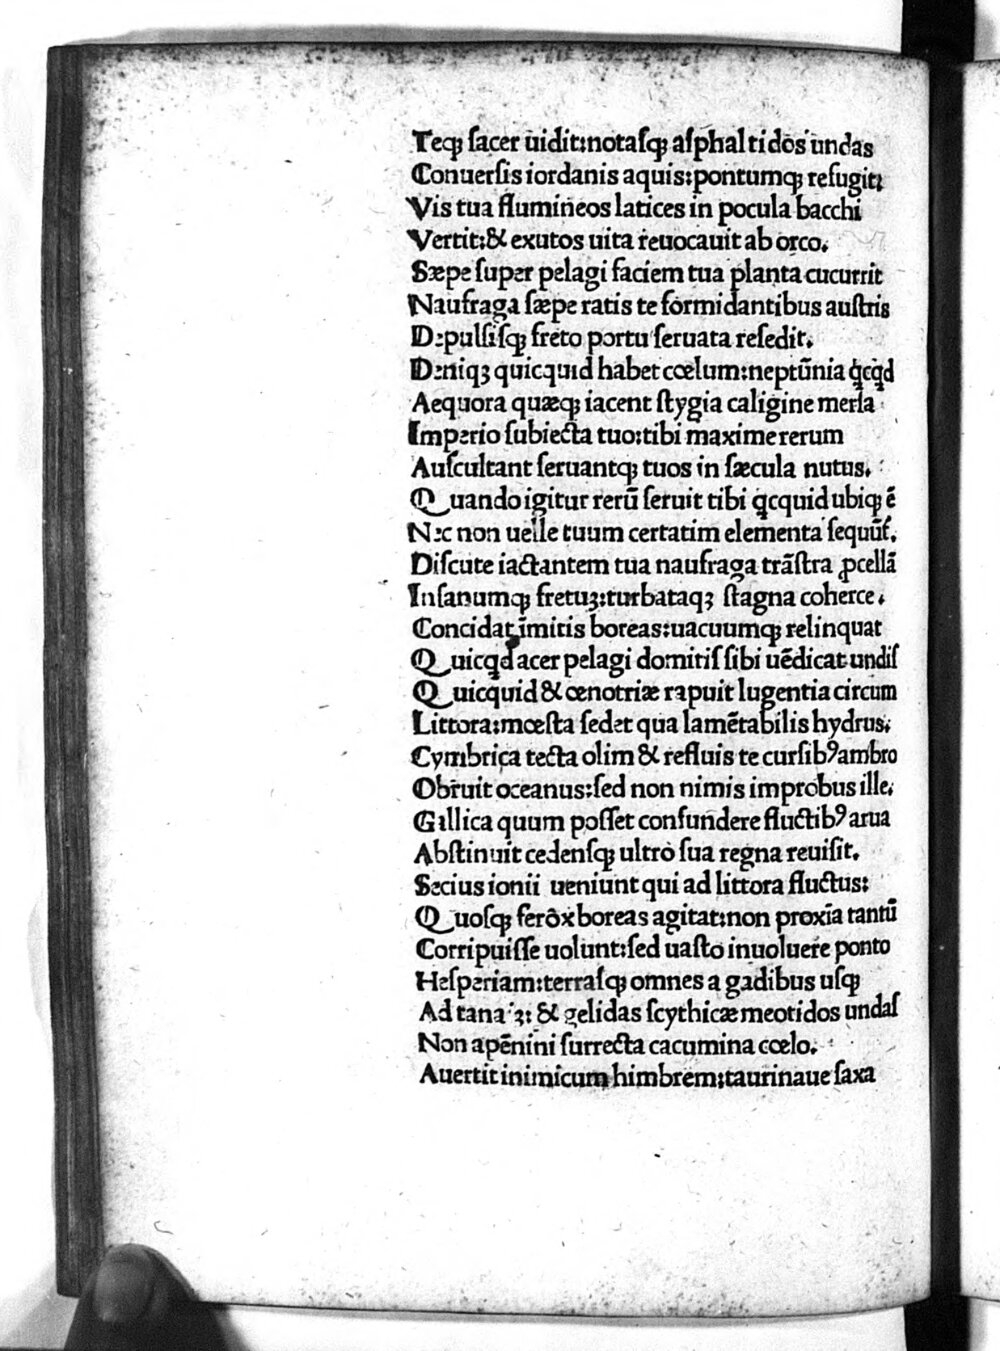 Teqꝫ ſacer uidit:notaſqꝫ aſphaltidos undas
Conuerſis iordanis aquis:pontumqꝫ refugit:
Vis tua flumineos latices in pocula bacchi
Vertit:& exutos uita reuocauit ab orco.
Sæpe ſuper pelagi faciem tua planta cucurrit
Naufraga ſæpe ratis te formidantibus auſtris
Depulſiſqꝫ freto portu ſeruata reſedit.
Deniqꝫ quicquid habet cœlum:neptūnia q̇cq̇d
Aequora quæqꝫ iacent ſtygia caligine merſa
Imperio ſubiecta tuo:tibi maxime rerum
Auſcultant ſeruantqꝫ tuos in ſæcula nutus.
Quando igitur rerū ſeruit tibi q̇cquid ubiqꝫ ē
Nec non uelle tuum certatim elementa ſequūſ.
Diſcute iactantem tua naufraga trāſtra ꝓcellā
Inſanumqꝫ fretuꝫ:turbataqꝫ ſtagna coherce.
Concidat īmitis boreas:uacuumqꝫ relinquat
Quicq̇d acer pelagi domitiſ ſibi uēdicat undiſ
Quicquid & œnotriæ rapuit lugentia circum
Littora:mœſta ſedet qua lamētabilis hydrus.
Cymbrica tecta olim & refluis te curſibꝰ ambro
Obruit oceanus:ſed non nimis improbus ille.
Gallica quum poſſet confundere fluctibꝰ arua
Abſtinuit cedenſqꝫ ultro ſua regna reuiſit.
Secius ionii ueniunt qui ad littora fluctus:
Quoſqꝫ ferōx boreas agitat:non proxīa tantū
Corripuiſſe uolunt:ſed uaſto inuoluere ponto
Heſperiam:terraſqꝫ omnes a gadibus uſqꝫ
Ad tanaiꝫ: & gelidas ſcythicæ meotidos undaſ
Non apēnini ſurrecta cacumina cœlo.
Auertit inimicum himbrem:taurinaue ſaxa